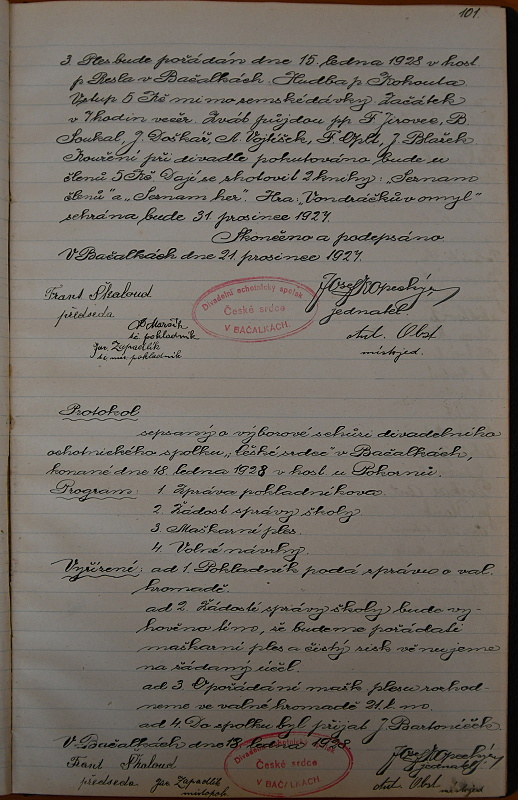 101.
3 Ples bude pořádán dne 15. ledna 1928 v host.
p. Resla v Bačalkách. Hudba p. Kohouta.
Vstup 5 Kč mimo zemské dávky. Začátek
v 7 hodin večer. Zvát půjdou pp. F. Jirovec, B.
Soukal, J. Doškář, A. Vojtíšek, F. Oplt, J. Blažek
Kouření při divadle pokutováno bude u
členů 5 Kč Dají se zhotovit 2 knihy: „Seznam
členů" a „Seznam her". Hra: „Vondráčkův omyl"
sehrána bude 31. prosince 1927.
Skončeno a podepsáno
V Bačalkách dne 21. prosince 1927.
Frant. Skaloud
předseda
pokladník
Jar. Zapadlík
Divadelní ochotnický spolek
České srdce
V BAČALKÁCH.
Josef Kopecký
jednatel.
Ant. Obst
místojed.
Protokol
sepsaný o výborové schůzi divadelního
ochotnického spolku „České srdce" v Bačalkách,
konané dne 18. ledna 1928 v host. u Pokornů.
Program: 1 Zpráva pokladníkova.
2. Žádost správy školy
3. Maškarní ples.
4. Volné návrhy.
Vyřízené: ad 1. Pokladník podá zprávu o val.
hromadě.
ad 2. Žádosti správy školy bude vy-
hověno tím, že budeme pořádati
maškarní ples a čistý zisk věnujeme
na žádaný účel.
ad 3. O pořádání mašk. plesu rozhod-
neme ve valné hromadě 21. t. m.
ad 4. Do spolku byl přijat J. Bartoníček
V Bačalkách dne 18. ledna 1928.
Frant. Skaloud
předseda
Jar. Zapadlík
místopok.
Divadelní ochotnický spolek
České srdce
V BAČALKÁCH
Josef Kopecký
jednatel
Ant. Obst
místojed